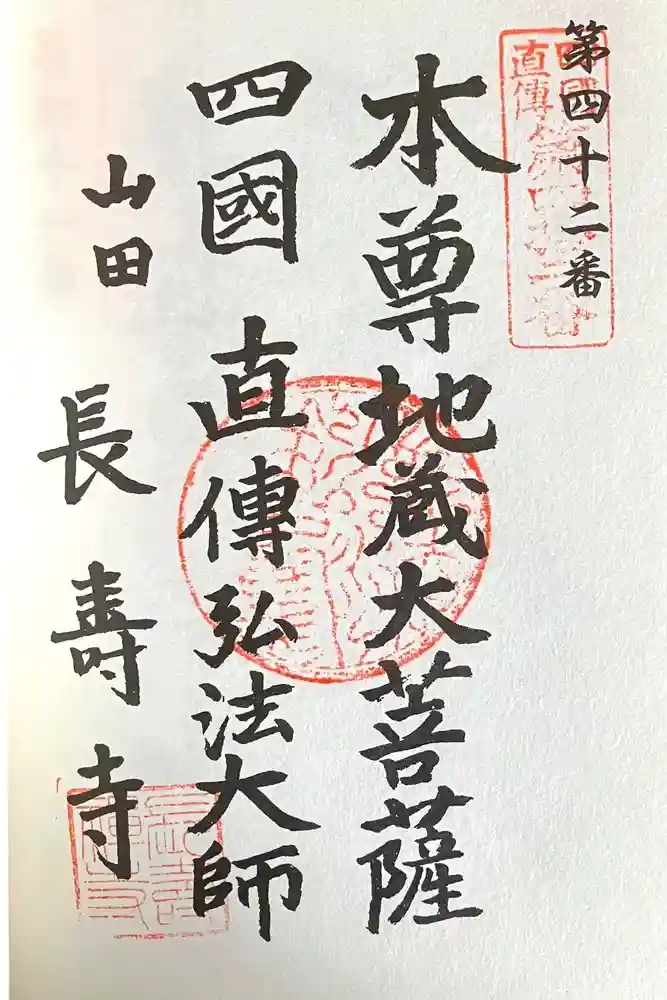 第四十二番
本尊地蔵大菩薩
四國 直傳弘法大師
山田 長壽寺